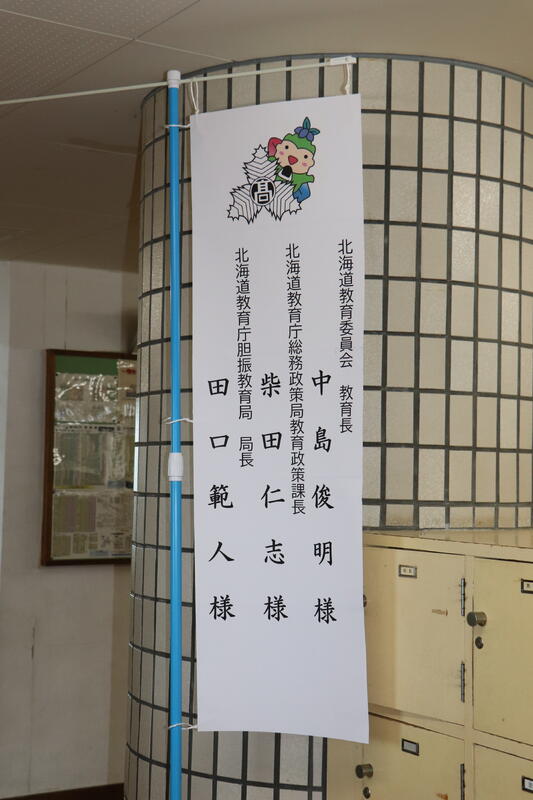 高
北海道教育委員会　教育長
中島俊明様
北海道教育庁総務政策局教育政策課長
柴田仁志様
北海道教育庁胆振教育局　局長
田口範人様